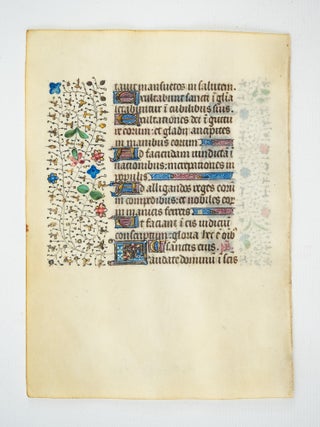 tabit mansuetos in salutem.
Exultabunt sancti i gl̄ia
letabuntur i cubilibus suis.
Exultationes dei ī guttu
re eorum: et gladii ancipites
in manibus eorum
Ad faciendam vindictā ī
nacionibus: increpationes in
populis
Ad alligandos reges eorū
in compedibus: et nobiles eor
um manicis ferreis
Ut faciant ī eis iudiciū
conscriptum: gloria hec ē oīb
sanctis eius. ps.
Laudate dominū i scīs